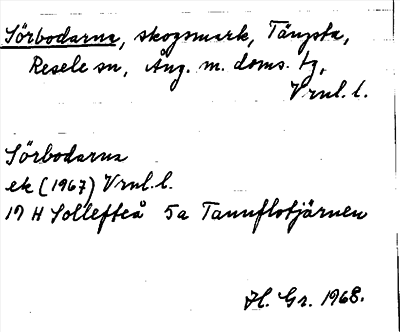 Sörbodarna, skogsmark, Tängsta,
Resele sn, Ång. m. doms. tg,
Vrnl. l.
Sörbodarna
ek (1967) Vrnl. l.
19 H Sollefteå 5a Tannflotjärnen
H. Gr. 1968.